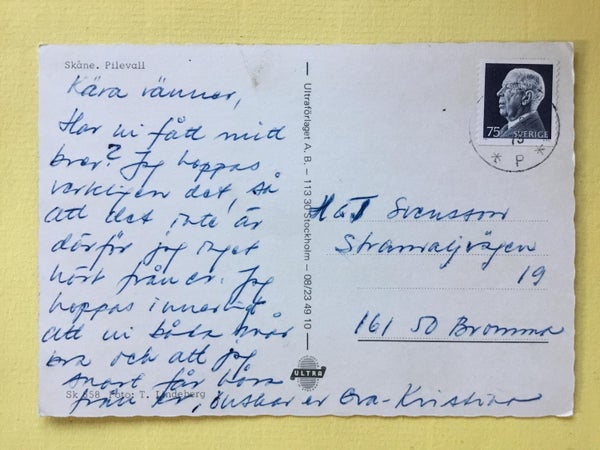 Skåne. Pilevall
Kära vänner,
Har ni fått mitt
brev? Jag hoppas
verkligen det, så
att det inte är
därför jag inget
hört från er. Jag
hoppas innerligt
att ni båda mår
bra och att jag
snart får höra
från er, önskar er Eva-Kristina
Sk 558 Foto: T. Lindeberg
Ultraförlaget A. B. – 113 30 Stockholm – 08/23 49 10
ULTRA
75 SVERIGE
* P *
H G T Svensson
19
161 50 Bromma